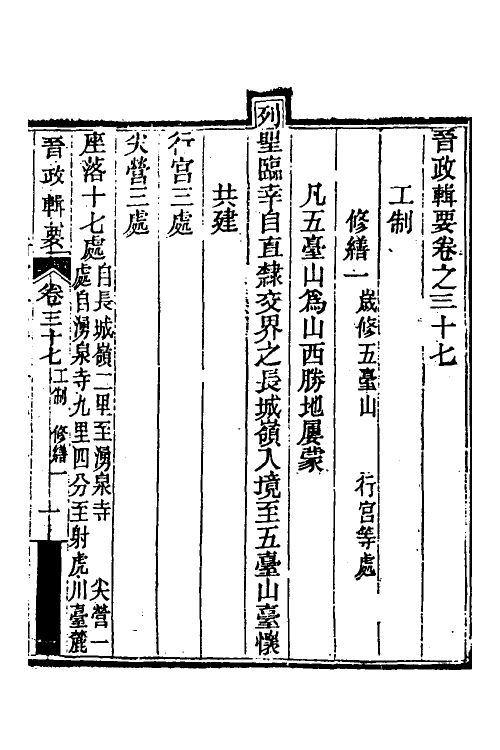 晉政輯要卷之三十七
工制
修繕一 歲修五臺山 行宮等處
凡五臺山爲山西勝地屢蒙
列聖臨幸自直隸交界之長城嶺入境至五臺山臺懷
共建
行宮三處
尖營三處
座落十七處自長城嶺二里至湧泉寺 尖營一
處自湧泉寺九里四分至射虎川臺麓
晉政輯要 卷三十七 工制 修繕一 一